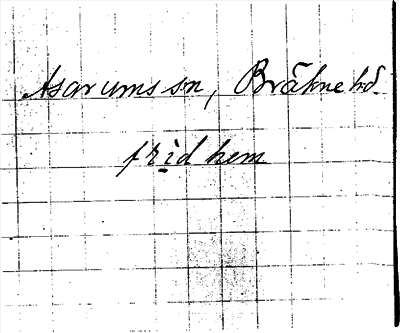 Asarums sn, Bräkne hd.
fridhem